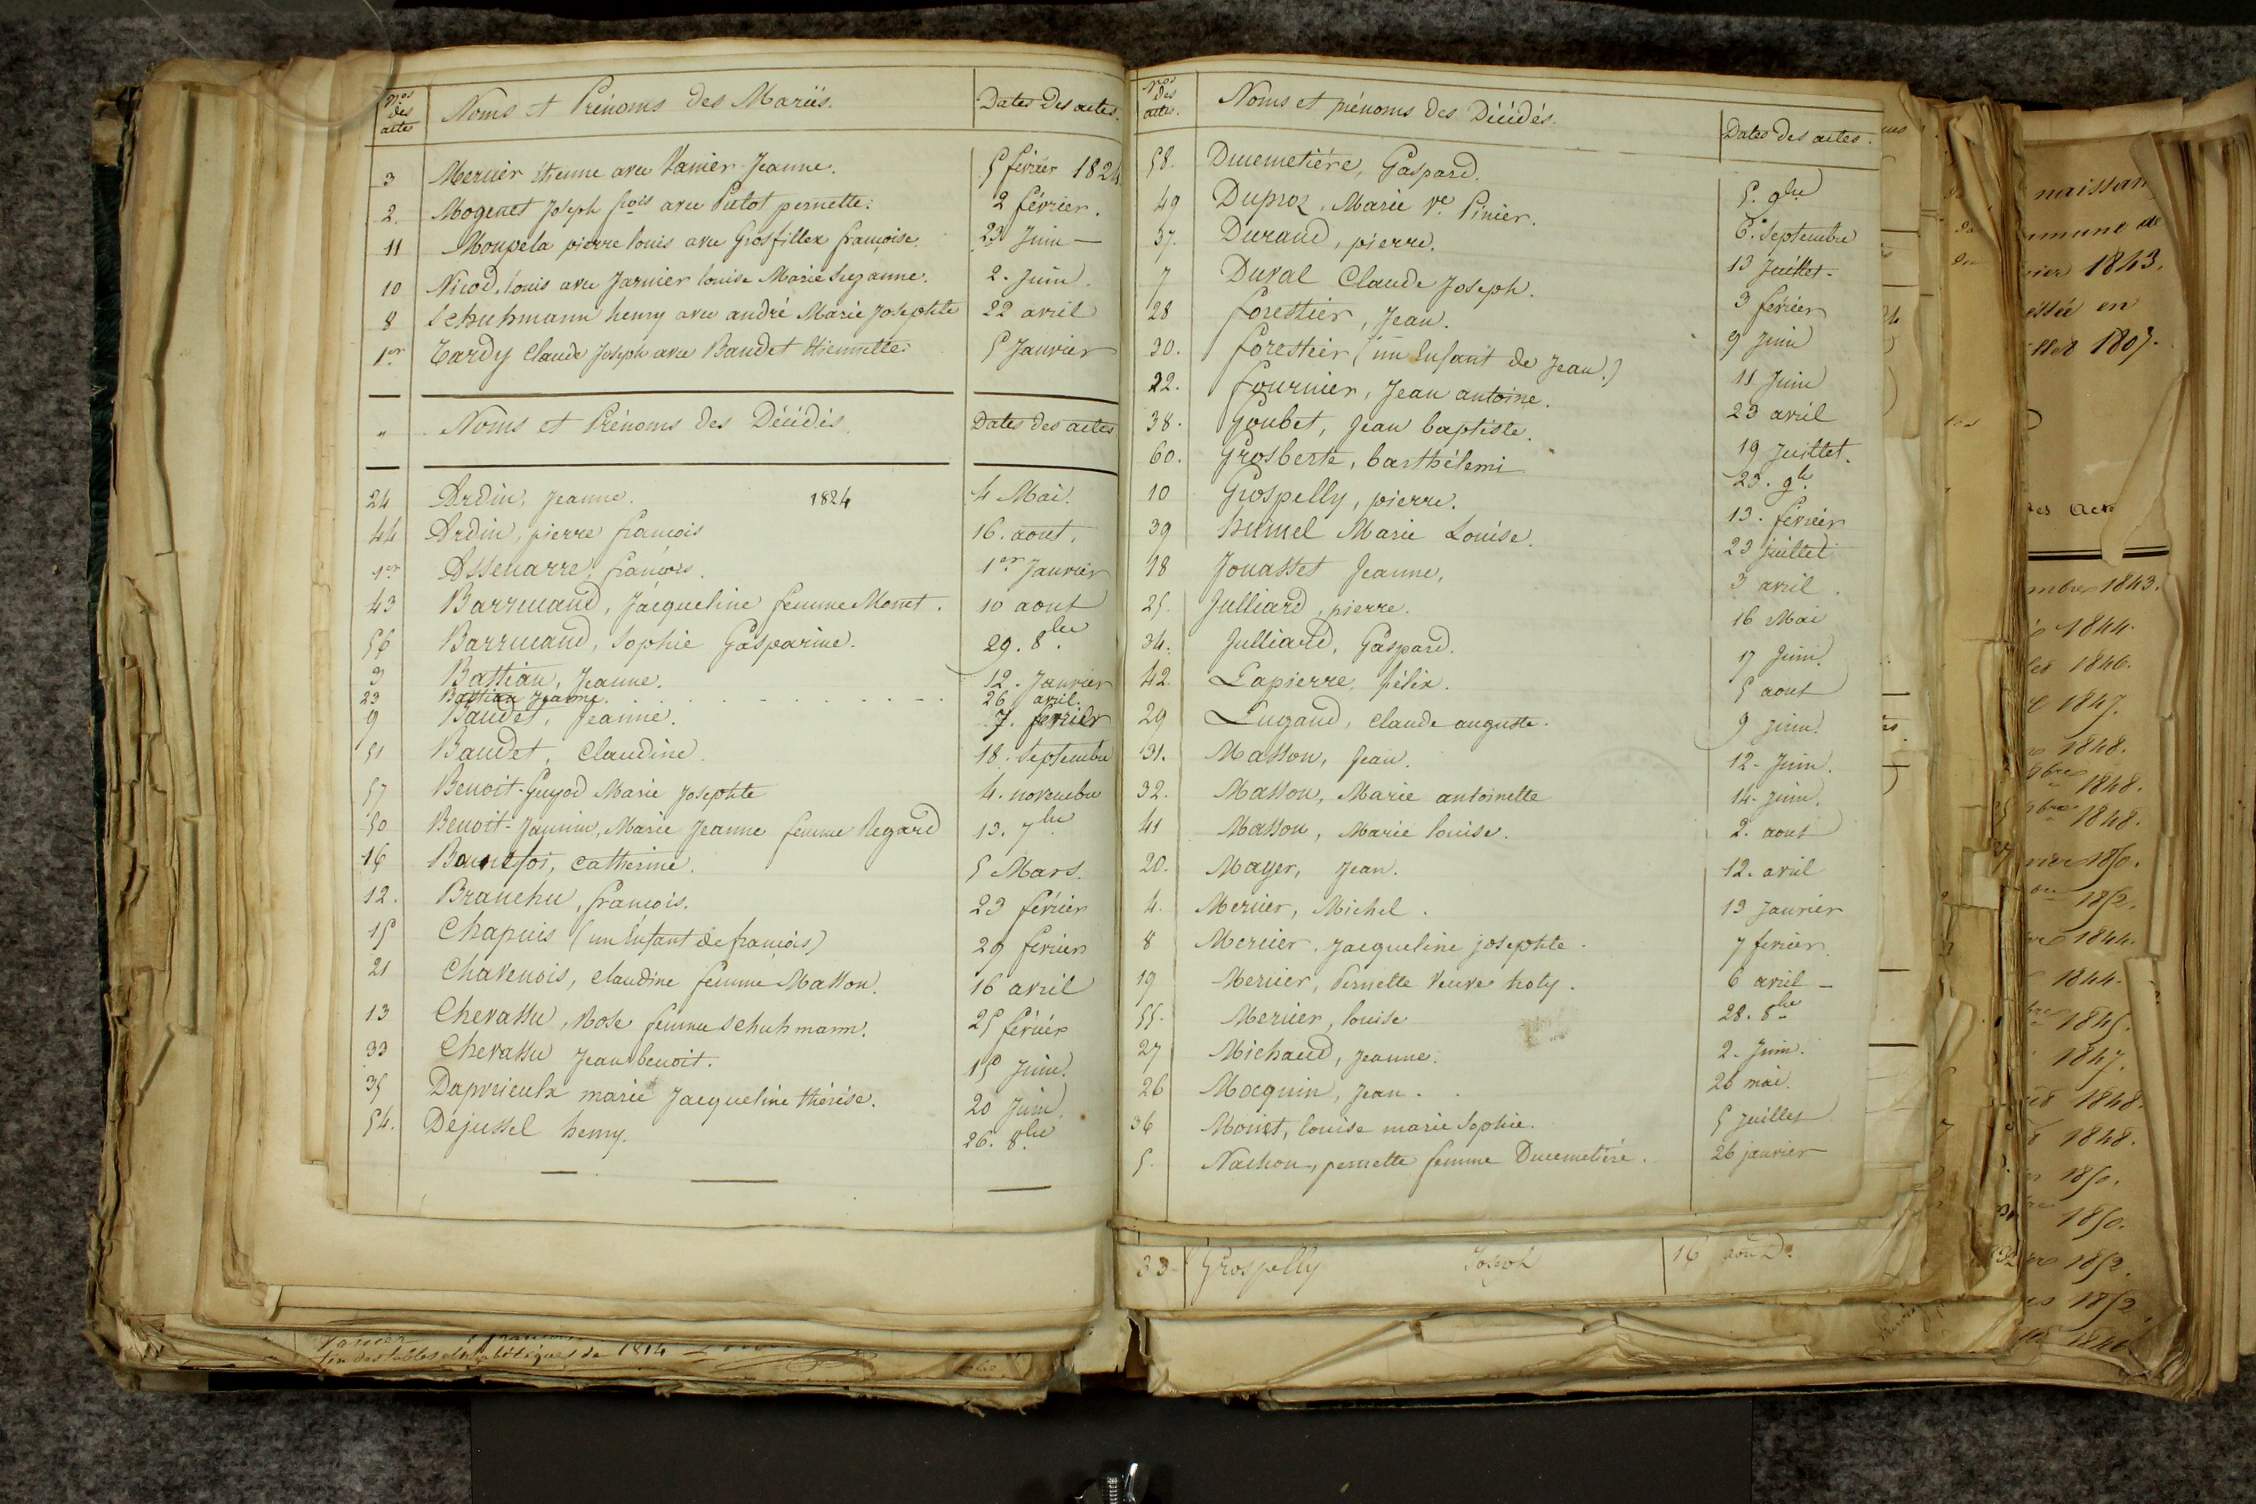 Nos des actes Noms et Prénoms des Mariés. Dates des actes.
3 Mercier étienne avec Vanier Jeanne. 5 février 1824
2. Mogenet Joseph fçois avec Putot pernette. 2 février.
11 Moupela pierre louis avec Grosfillex françoise. 23 Juin
10 Nicod, louis avec Jarnier louise Marie Suzanne. 2. Juin.
8 Schuhmann henry avec andré Marie Josephte 22 avril
1er Tardy Claude Joseph avec Baudet Etiennette. 5 Janvier
" Noms et Prénoms des Décédés Dates des actes
24 Ardin, Jeanne. 1824 4 Mai.
44 Ardin, pierre françois 16. aout.
1er Assenarre, françois. 1er Janvier
43 Barruand, Jacqueline femme Monet. 10 aout
56 Barruand, Sophie Gasparine. 29. 8bre
3 Bastian, Jeanne. 12. Janvier
23 Bastian Jeanne. 26 avril.
9 Baudet, Jeanne. 7. fevrier
51 Baudet, Claudine. 18. Septembre
57 Benoit-Guyod Marie Josephte 4. novembre
50 Benoit-Jannin, Marie Jeanne femme Regard 13. 7bre
16 Bonnefoi, Catherine. 5 Mars.
12. Branchu, françois. 23 février
15 Chapuis (un Enfant de françois) 29 fevrier
21 Chavenois, claudine femme Masson. 16 avril
13 Chevassu, Rose femme Schuhmann. 25 février
33 Chevassu Jean benoit. 15 Juin.
35 Daprieula marie Jacqueline thérèse. 20 Juin.
54. Dejussel henry. 26. 8bre
Nos des actes. Noms et prénoms des Décédés. Dates des actes.
58. Ducemetière, Gaspard. 5. 9bre
49 Duproz, Marie ve Pinier. 6. Septembre
37. Durand, pierre. 13 Juillet.
7 Duval Claude Joseph. 3 fevrier
28 forestier, Jean. 9 Juin
30. forestier (un Enfant de Jean.) 11 Juin
22. fournier, Jean antoine. 23 avril
38. Goubet, Jean baptiste. 19 Juillet.
60. Grosberte, barthélemi 23. 9bre
10 Grospelly, pierre. 13. février
39 humel Marie Louise. 23 juillet
18 Jouasset Jeanne, 3 avril.
25. Julliard, pierre. 16 Mai
34. Julliard, Gaspard. 17 Juin.
42. Lapierre, félix. 5 aout
29 Lugand, Claude auguste. 9 Juin.
31. Masson, Jean. 12. Juin.
32. Masson, Marie antoinette 14. Juin.
41 Masson, Marie louise. 2. aout
20. Mayer, Jean. 12. avril
4. Mercier, Michel. 13 Janvier
8 Mercier, Jacqueline josephte. 7 fevrier
19 Mercier, Pernette Veuve holy. 6 avril
55. Mercier, louise 28. 8bre
27 Michaud, Jeanne. 2. Juin.
26 Mocquin, Jean. 26 mai.
36 Monet, louise marie Sophie. 5 juillet
5. Nachon, pernette femme Ducemetière. 26 janvier
33 Grospelly Joseph 16 aout
fin des tables alphabétiques de 1814
naissan
mmune de
vier 1843.
essée en
1807.
des Acte
mbre 1843.
1844.
1846.
1847.
1848.
9bre 1848.
9bre 1848.
1850.
1852.
1844.
1844.
1845.
1847.
1848.
1848.
1850.
1850.
1852.
1852
1846